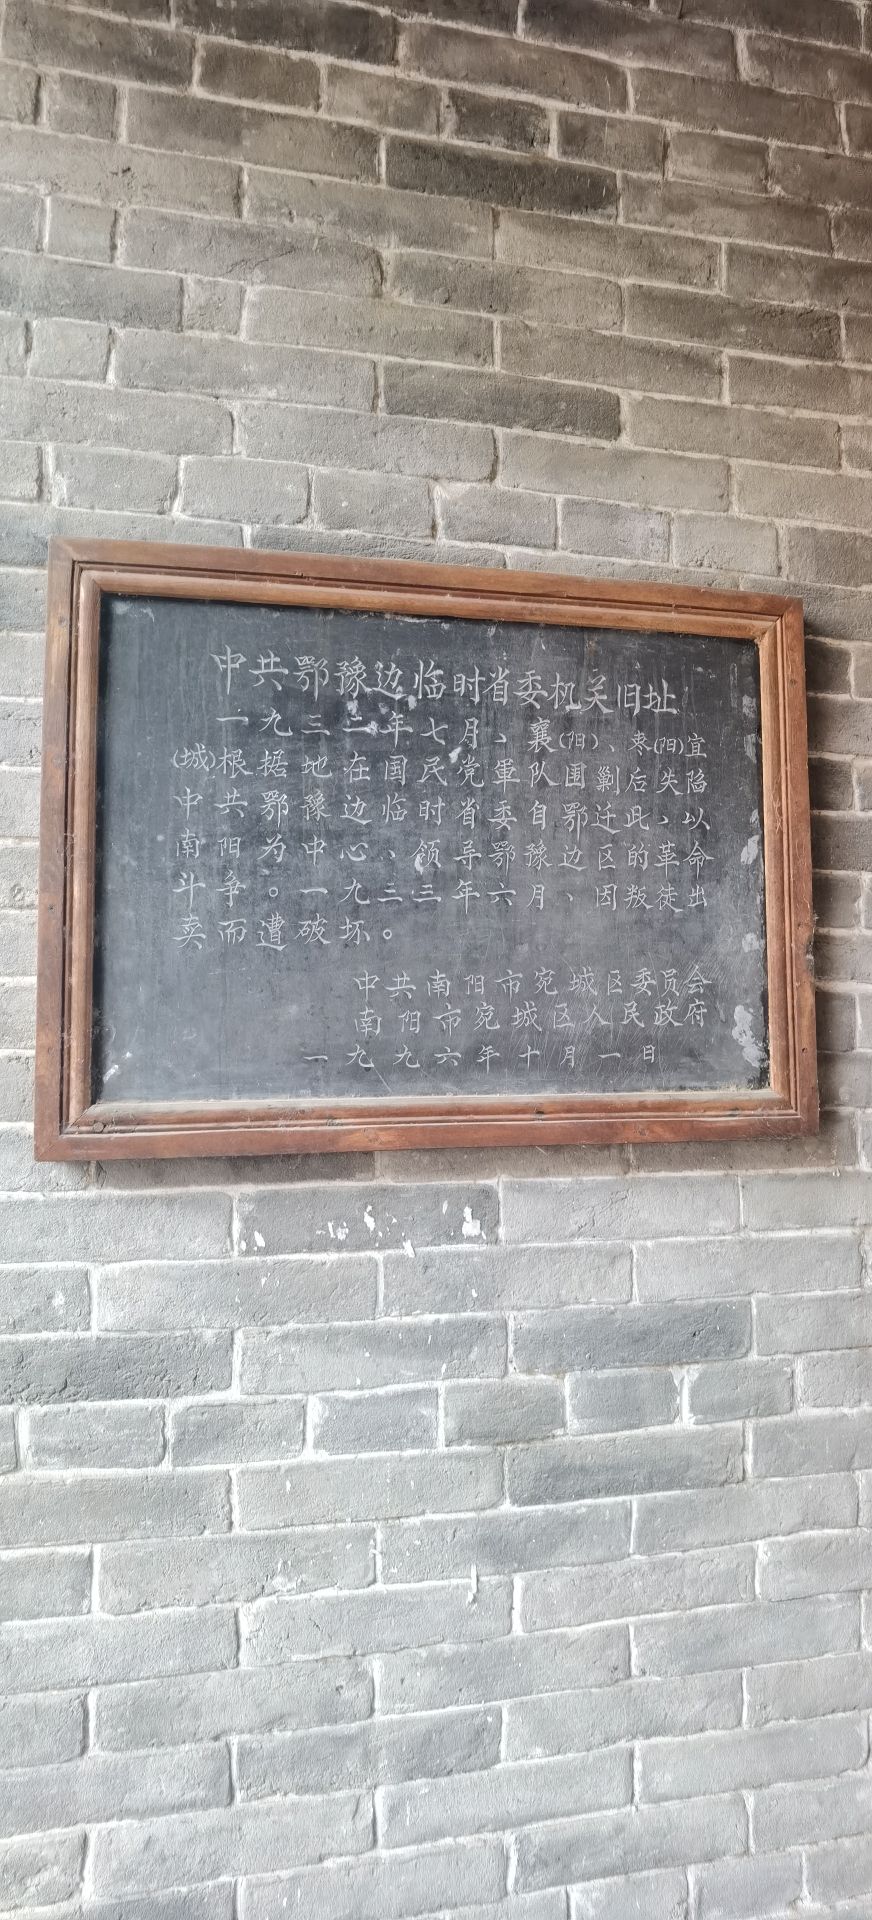 中共鄂豫边临时省委机关旧址
一九三二年七月、襄(阳)、枣(阳)宜
(城)根据地在国民党軍队围剿后失陷
中共鄂豫边临时省委自鄂迁此、以
南阳为中心、领导鄂豫边区的革命
斗争。一九三三年六月、因叛徒出
卖而遭破坏。
中共南阳市宛城区委员会
南阳市宛城区人民政府
一九九六年十月一日